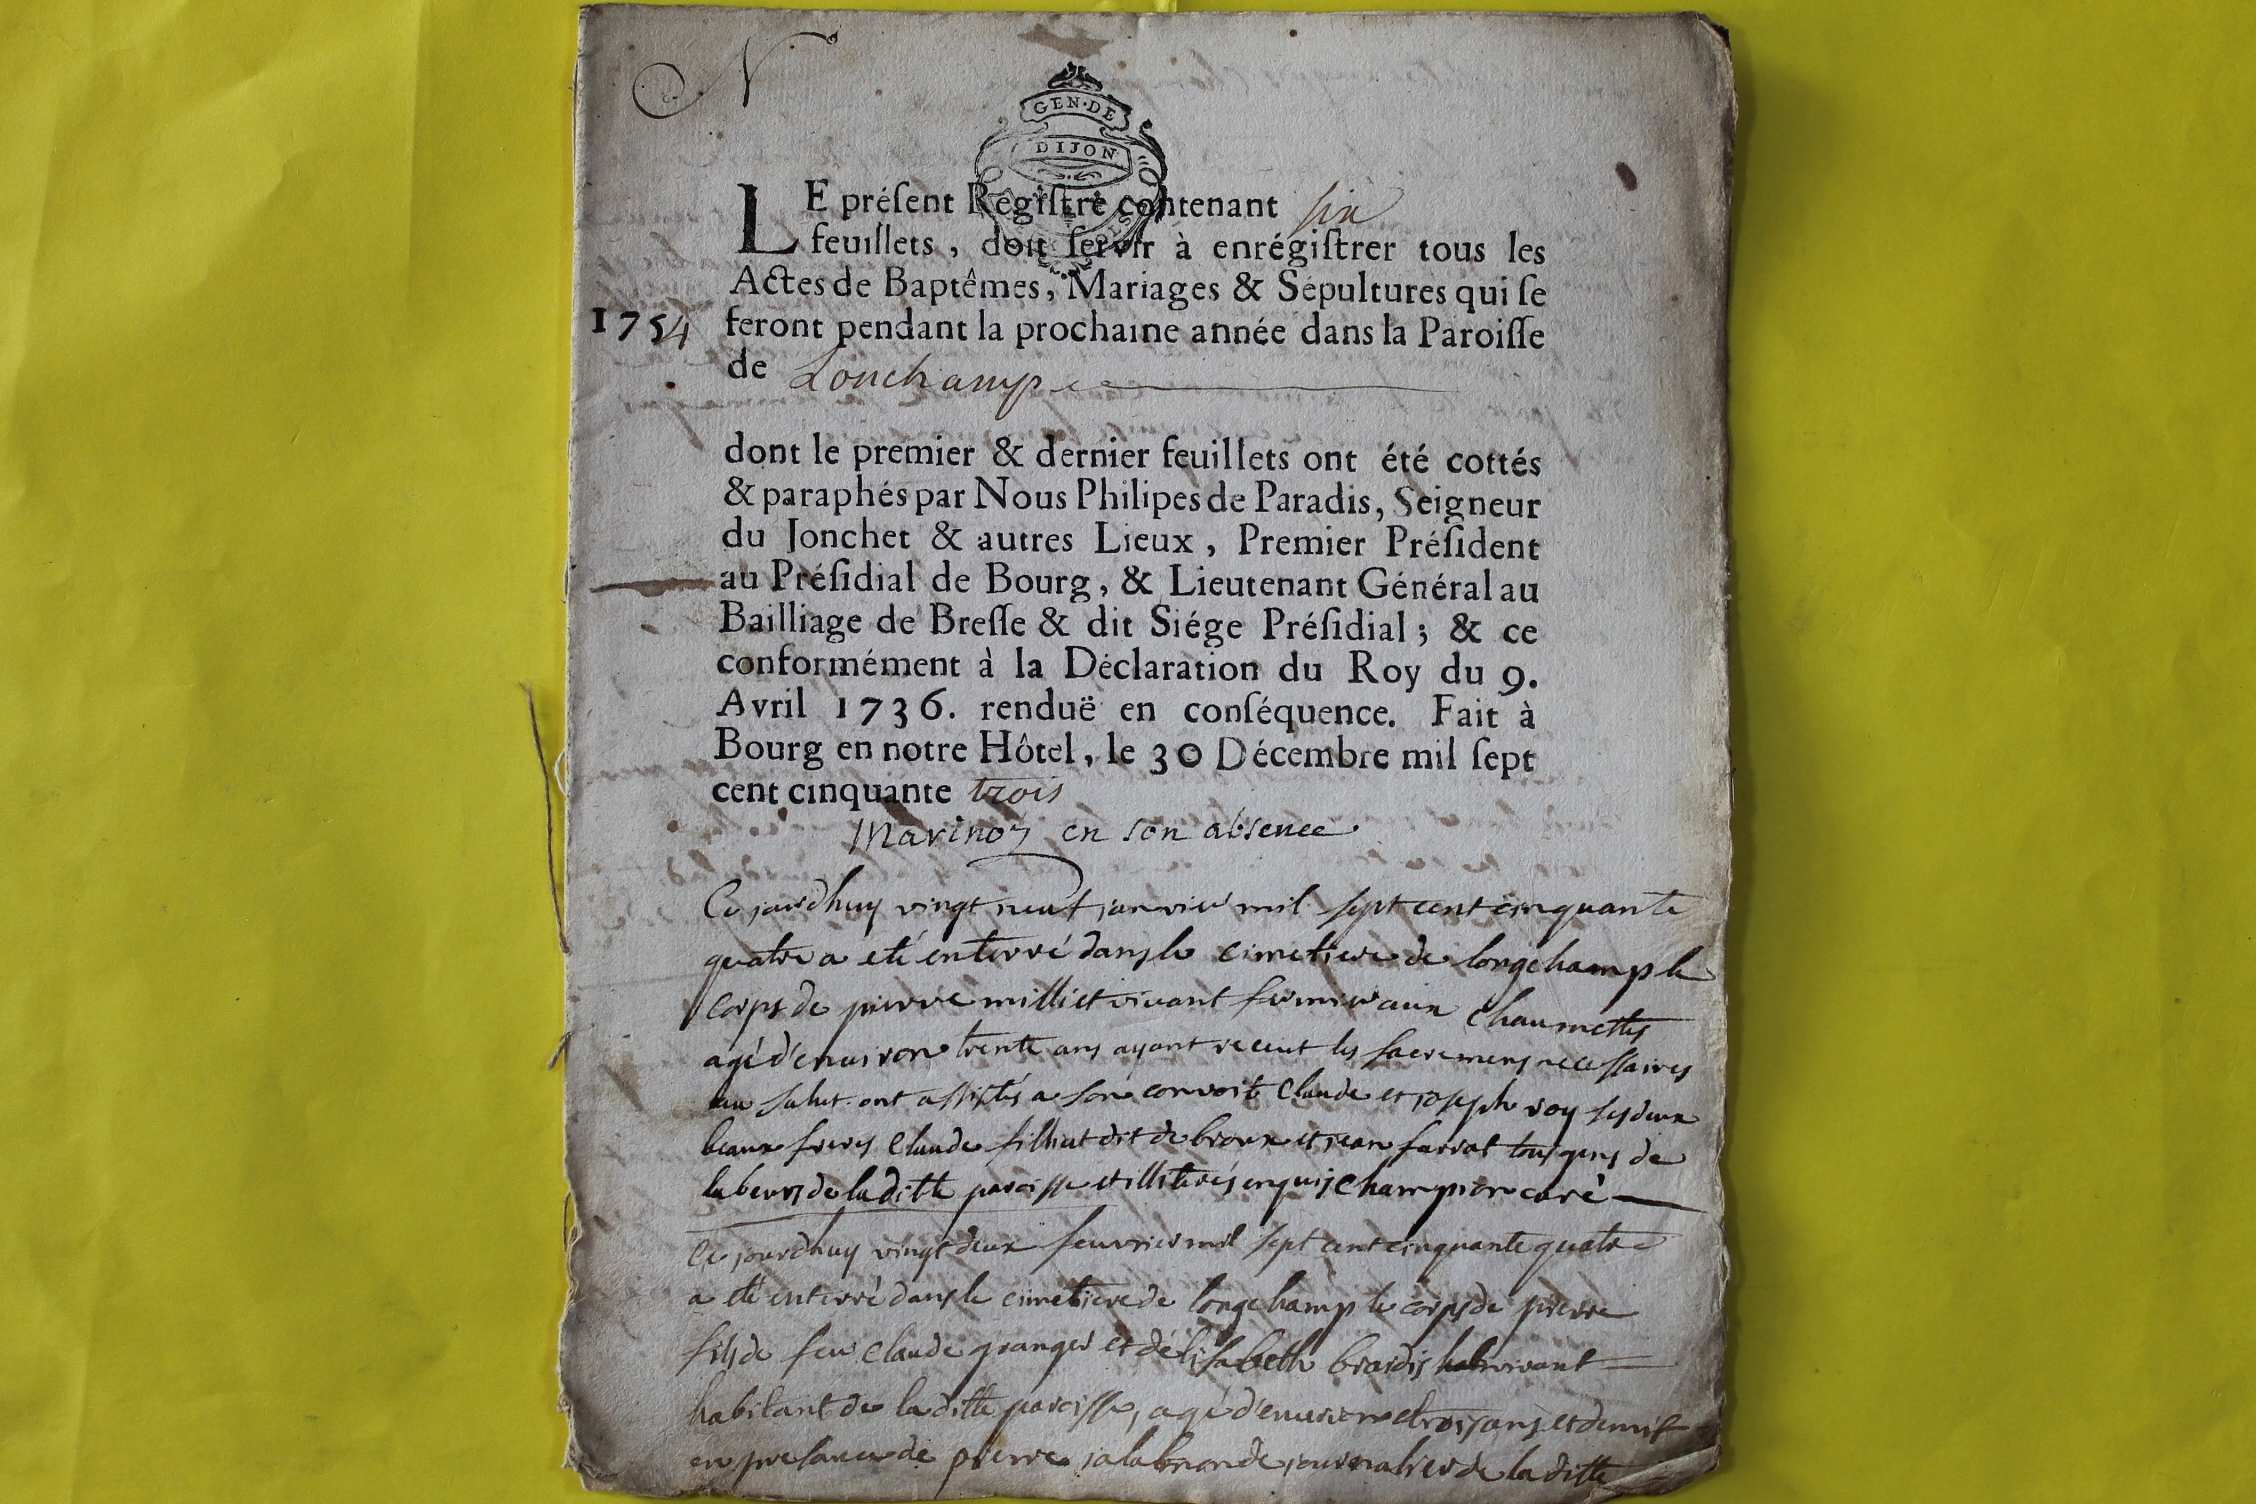 N
GEN·DE
DIJON
LE préſent Régiſtre contenant six
feuillets, doit ſervir à enrégiſtrer tous les
Actes de Baptêmes, Mariages & Sépultures qui ſe
1754 feront pendant la prochaine année dans la Paroiſſe
de Lonchamp
dont le premier & dernier feuillets ont été cottés
& paraphés par Nous Philipes de Paradis, Seigneur
du Jonchet & autres Lieux, Premier Préſident
au Préſidial de Bourg, & Lieutenant Général au
Bailliage de Breſſe & dit Siége Préſidial; & ce
conformément à la Déclaration du Roy du 9.
Avril 1736. renduë en conſéquence. Fait à
Bourg en notre Hôtel, le 30 Décembre mil ſept
cent cinquante trois
en son absence
Ce jourdhuy vingt neuf janvier mil sept cent cinquante
quatre a eté enterré dans le cimetiere de longchamp le
corps de pierre milliet vivant fermier aux chaumettes
agé d'environ trente ans ayant receut les sacremens necessaires
au salut. ont assistés a son convoit Claude et joseph roy ses deux
beaux freres Claude filliat dit de broux et jean farrat tous gens de
labeurs de la ditte paroisse et illiterés enquis Champion curé
Ce jourdhuy vingt deux feuvrier mil sept cent cinquante quatre
a eté enterré dans le cimetiere de longchamp le corps de pierre
fils de feu Claude granger et d'élisabeth vivant
habitant de la ditte paroisse, agé d'environ trois ans et demit
en presance de pierre journalier de la ditte